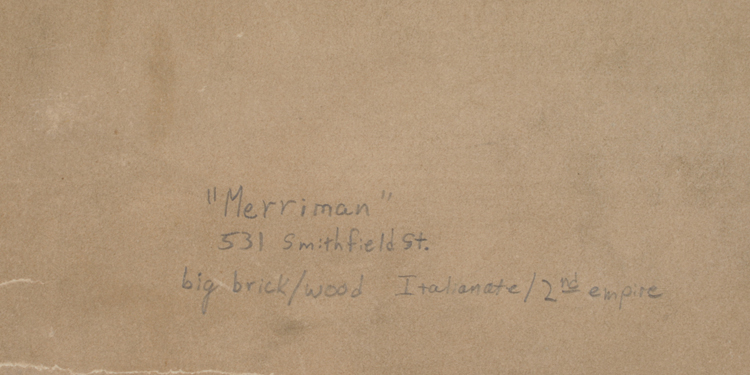 "Merriman"
531 Smithfield St.
big brick/wood Italianate/2nd empire